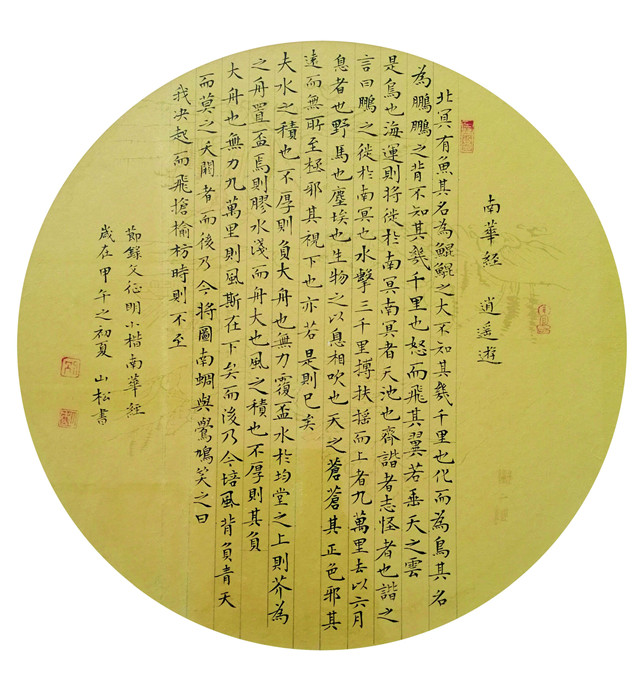 南華經 逍遥遊
北冥有魚其名為鯤鯤之大不知其幾千里也化而為鳥其名
為鵬鵬之背不知其幾千里也怒而飛其翼若垂天之雲
是鳥也海運則將徙於南冥南冥者天池也齊諧者志怪者也諧之
言曰鵬之徙於南冥也水擊三千里摶扶摇而上者九萬里去以六月
息者也野馬也塵埃也生物之以息相吹也天之蒼蒼其正色邪其
遠而無所至極邪其視下也亦若是則已矣
夫水之積也不厚則負大舟也無力覆盃水於均堂之上則芥為
之舟置盃焉則膠水淺而舟大也風之積也不厚則其負
大舟也無力九萬里則風斯在下矣而後乃今培風背負青天
而莫之夭閼者而後乃今將圖南蜩與鷽鳩笑之曰
我决起而飛搶榆枋時則不至
節錄文征明小楷南華經
歲在甲午之初夏 山松書